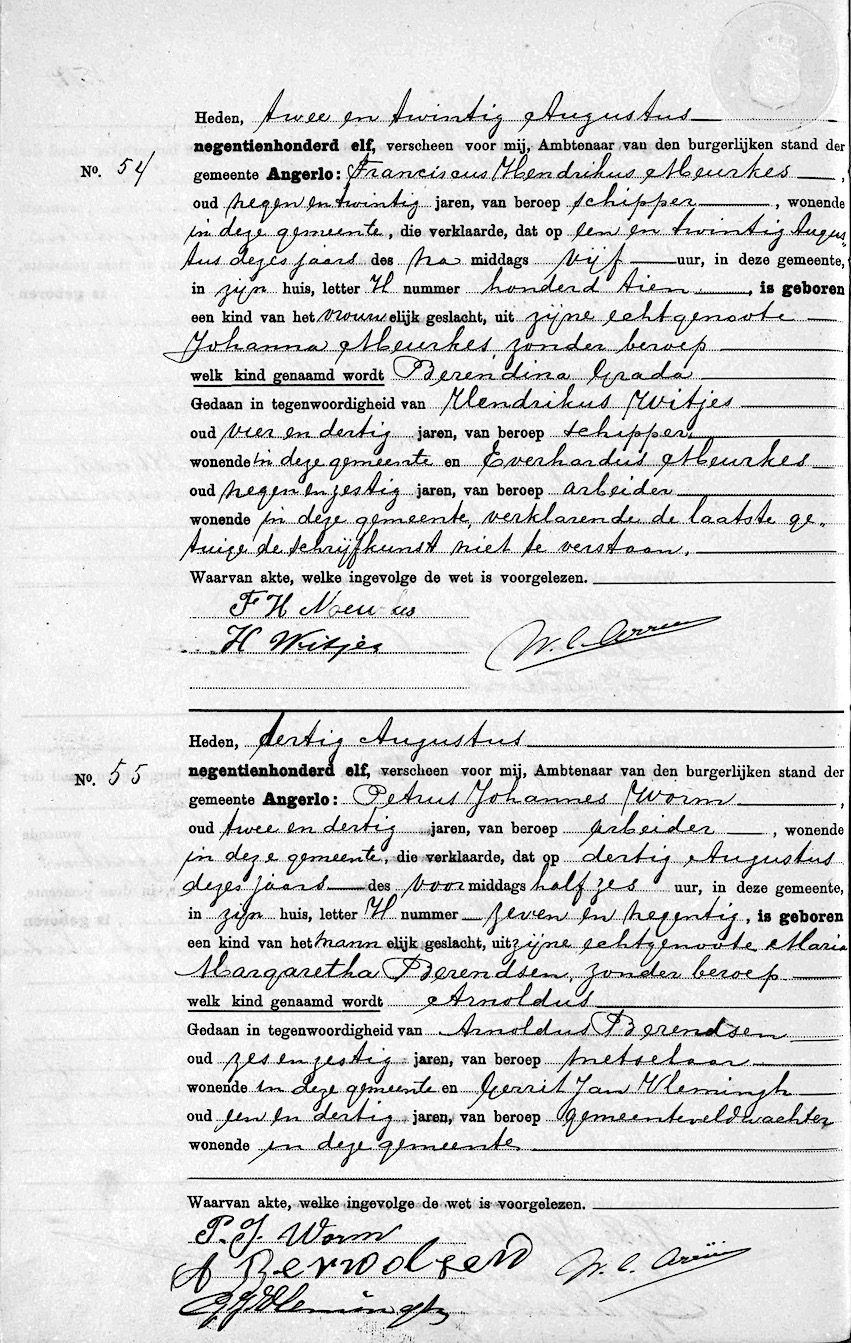 Heden, twee en twintig Augustus
negentienhonderd elf, verscheen voor mij, Ambtenaar van den burgerlijken stand der
No. 54 gemeente Angerlo: Franciscus Hendrikus Meurkes,
oud negen en twintig jaren, van beroep schipper, wonende
in deze gemeente, die verklaarde, dat op een en twintig Augus-
tus dezes jaars des na middags vijf uur, in deze gemeente,
in zijn huis, letter H nummer honderd tien, is geboren
een kind van het vrouwelijk geslacht, uit zijne echtgenoote
Johanna Meurkes, zonder beroep
welk kind genaamd wordt Berendina Grada
Gedaan in tegenwoordigheid van Hendrikus Witjes
oud vier en dertig jaren, van beroep schipper,
wonende in deze gemeente en Everhardus Meurkes
oud negen en zestig jaren, van beroep arbeider
wonende in deze gemeente, verklarende de laatste ge-
tuige de schrijfkunst niet te verstaan.
Waarvan akte, welke ingevolge de wet is voorgelezen.
F H
H Witjes W. C.
Heden, dertig Augustus
No. 55 negentienhonderd elf, verscheen voor mij, Ambtenaar van den burgerlijken stand der
gemeente Angerlo: Petrus Johannes Worm,
oud twee en dertig jaren, van beroep arbeider, wonende
in deze gemeente, die verklaarde, dat op dertig Augustus
dezes jaars des voormiddags half zes uur, in deze gemeente,
in zijn huis, letter H nummer zeven en negentig, is geboren
een kind van het mannelijk geslacht, uit zijne echtgenoote Maria
Margaretha Berendsen, zonder beroep
welk kind genaamd wordt Arnoldus
Gedaan in tegenwoordigheid van Arnoldus Berendsen
oud zes en zestig jaren, van beroep metselaar
wonende in deze gemeente en Gerrit Jan Vlemingh
oud een en dertig jaren, van beroep gemeenteveldwachter
wonende in deze gemeente
Waarvan akte, welke ingevolge de wet is voorgelezen.
P. J. Worm
A Berendsen W. C.
G J Vlemingh